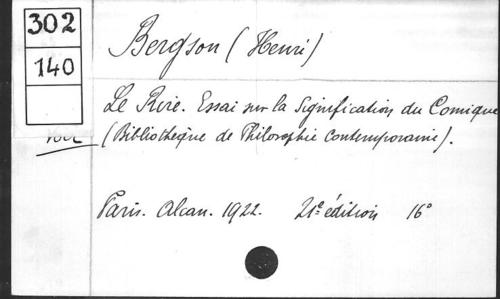 302
140
Bergson (Henri)
Le Rire. Essai sur la Signification du Comique
(Bibliothèque de Philosophie Contemporaine).
Paris. Alcan. 1922. 21e édition 16°